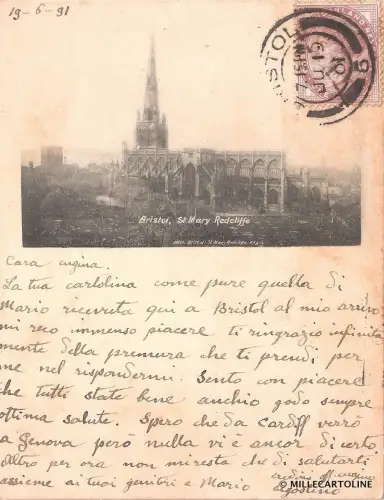 19-6-91
BRISTOL
Bristol, St Mary Redcliffe
Cara cugina.
La tua cartolina come pure quella di
Mario ricevuta qui a Bristol al mio arrivo
mi reco immenso piacere ti ringrazio infinita
mente della premura che ti prendi per
me nel rispondermi. Sento con piacere
che tutti state bene anchio godo sempre
ottima salute. Spero che da Cardiff verrò
a Genova però nulla vi è ancor di certo
Altro per ora non miresta che di salutarti
assieme ai tuoi genitori e Mario
credimi aff. cugino
Agostino
MILLECARTOLINE